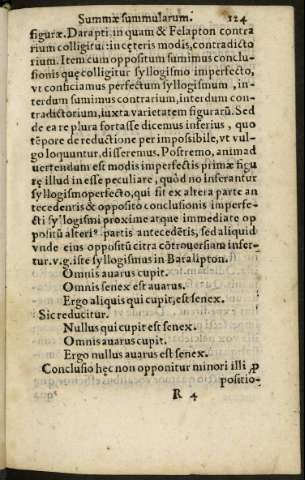 Summæ summularum. 124
figuræ. Darapti, in quam & Felapton contra
rium colligitur: in cęteris modis, contradicto
rium. Item cum oppositum sumimus conclu-
sionis quę colligitur syllogismo imperfecto,
vt conficiamus perfectum syllogismum, in-
terdum sumimus contrarium, interdum con-
tradictorium, iuxta varietatem figurarū. Sed
de ea re plura fortasse dicemus inferius, quo
tēpore de reductione per impossibile, vt vul-
go loquuntur, disseremus. Postremo, animad
uertendum est modis imperfectis primæ figu
rę illud in esse peculiare, quòd no inferantur
syllogismo perfecto, qui sit ex altera parte an
tecedentis & opposito conclusionis imperfe-
cti syllogismi proxime atque immediate op
positū alteriꝰ partis antecedētis, sed aliquid
vnde eius oppositū citra cōtrouersiam infer-
tur. v.g. iste syllogismus in Baralipton.
Omnis auarus cupit.
Omnis senex est auarus.
Ergo aliquis qui cupit, est senex.
Sic reducitur.
Nullus qui cupit est senex.
Omnis auarus cupit.
Ergo nullus auarus est senex.
Conclusio hęc non opponitur minori illi ꝓ
positio-
R 4